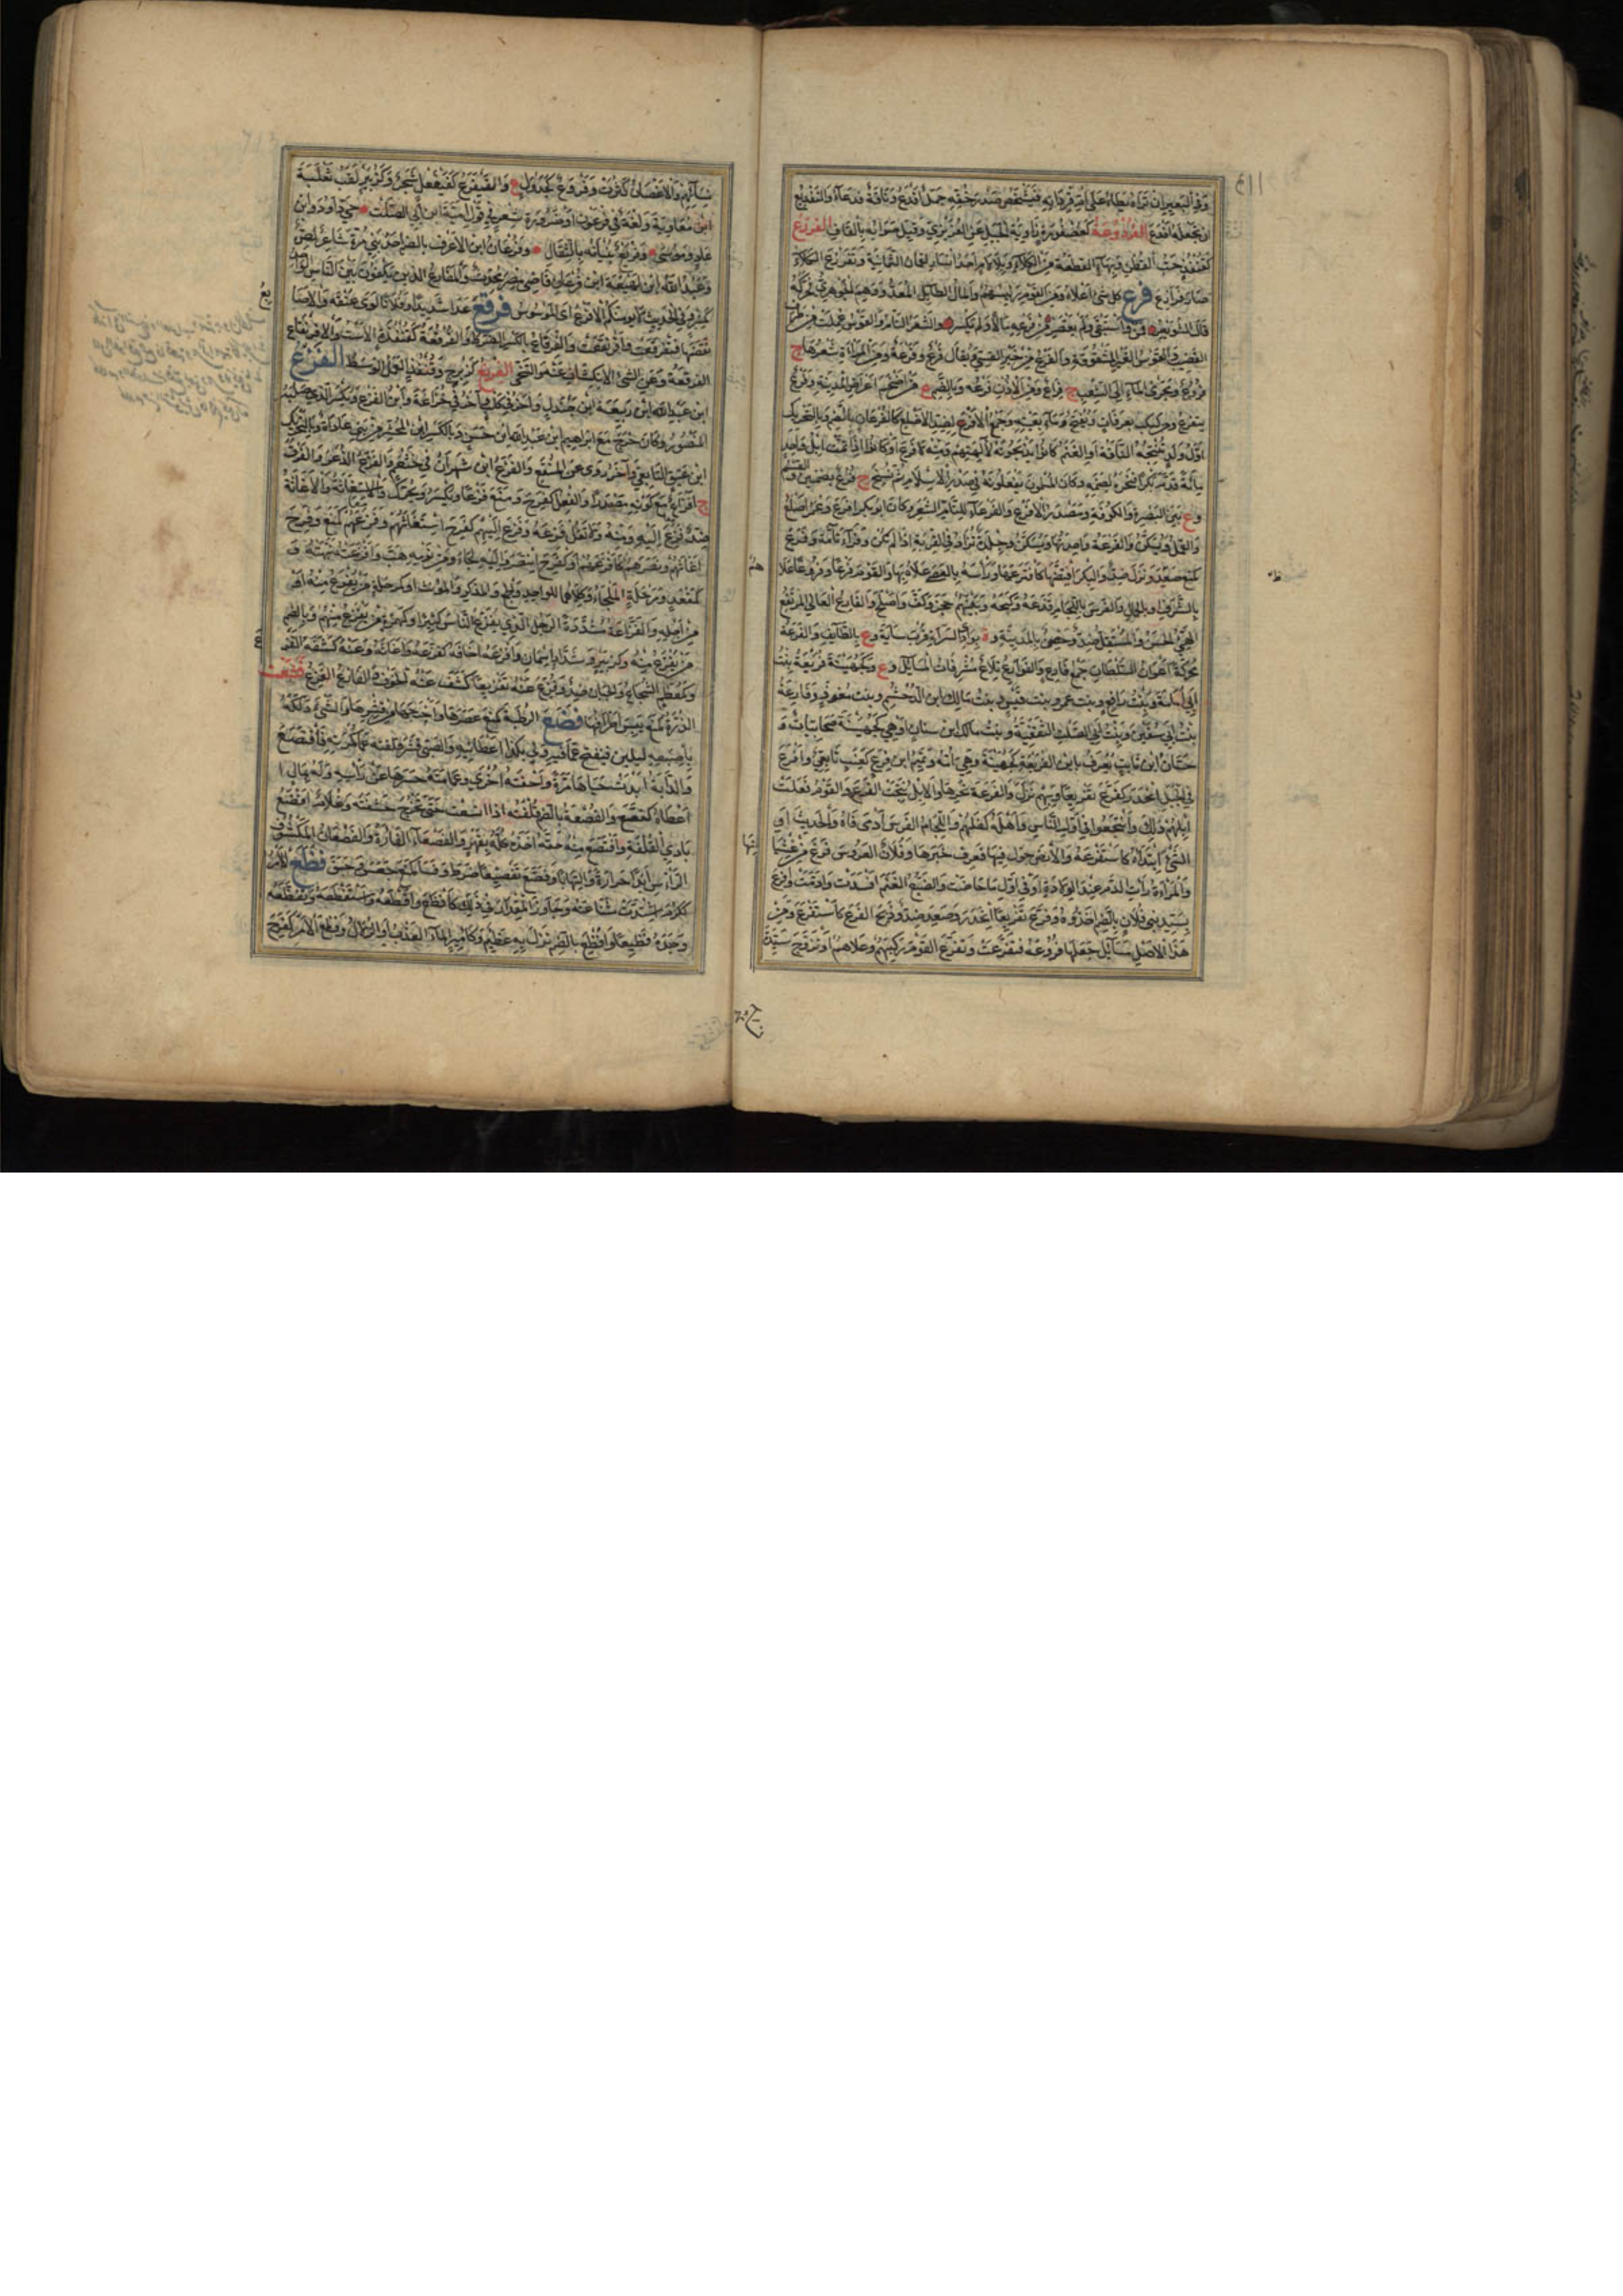 وفي البعير ان تراه يطأ على ام قردانه فيشخص صدر خفه جمل افدع وناقة فدعاء والتفديع
ان تجعله افدع الفردوعة كعصفورة زاوية الجبل عن العزيزي وقيل صوابه بالقاف الفرزع
كقنفذ حب القطن وبهاء القطعة من الكلاء وبلا لام احد انسار لقمان الثمانية وتفرزع الكلاء
صار فرازع فرع كل شئ اعلاه ومن القوم شريفهم والمال الطائل المعد ووهم الجوهري فحركه
قال الشويعر فمن واستبقى ولم يعتصر من فرعه مالا ولم يكسر والشعر التام والقوس عملت من طرف
القضيب والقوس الغير المشقوقة والفرع من خير القسي ويقال فرع وفرعة ومن المراة شعرها ج
فروع ومجرى الماء الى الشعب ج فراع ومن الاذن فرعه وبالضم ع من اضخم اعراض المدينة وفرع
يتفرع من كبكب بعرفات ويفتح وماء بعينه وجمع الافرع لضد الاصلع كالفرعان بالضم وبالتحريك
اول ولد تنتجه الناقة او الغنم كانوا يذبحونه لآلهتهم ومنه لا فرع او كانوا اذا تمت ابل واحد
مائة قدم بكره فنحره لصنمه وكان المسلمون يفعلونه في صدر الاسلام ثم نسخ ج فرع بضمتين
وع بين البصرة والكوفة ومصدر الافرع والفرعاء للتام الشعر وكان ابو بكر افرع وعمر اصلع
والقمل ويسكن والفرعة واحدتها ويسكن وجلدة تزاد في القربة اذا لم تكن وفراء تامة وفرع
كمنع صعد ونزل ضد والبكر افتضها كافترعها وراسه بالعصا علاه بها والقوم فرعا وفروعا علا
بالشرف او بالجمال والفرس باللجام قدعه وكبحه وبينهم حجز وكف واصلح والفارع العالي المرتفع
الهيئ الحسن والمستفل ضد وحصن بالمدينة وة بوادي السراة قرب ساية وع بالطائف والفرعة
محركة اعوان السلطان جمع فارع والفوارع تلاع مشرفات المسايل وع وكجهينة فريعة بنت
ابي امامة وبنت رافع وبنت عمر وبنت قيس وبنت مالك ابن الدخشم وبنت معوذ وفارعة
بنت ابي سفين وبنت ابي الصلت الثقفية وبنت مالك ابن سنان او هي كجهينة صحابيات و
حسان ابن ثابت يعرف بابن الفريعة كجهينة وهي امه وتميم ابن فرع كعنب تابعي وافرع
في الجبل انحدر كفرع تفريعا وبهم نزل والفرعة نحرها والابل نتجت الفرع والقوم فعلت
ابلهم ذلك وانتجعوا في اول الناس واهله كفلهم واللجام الفرس ادمى فاه والحديث او
الشئ ابتداه كاستفرعه والارض جول فيها فعرف خبرها وفلان العروس فرغ من غشيانها
والمراءة رات الدم عند الولادة او في اول ما حاضت والضبع الغنم افسدت وادمت وافرع
بسيد بني فلان بالضم اخذوه وفرع تفريعا انحدر وصعد ضد وذبح الفرع كاستفرع ومن
هذا الاصل مسائل جعلها فروعه فتفرعت وتفرع القوم ركبهم وعلاهم او تزوج سيدة
نسائهم والاغصان كثرت وفروع كجدول ع والفيفرع كفيفعل شجر وكزبير لقب ثعلبة
ابن معاوية ولغة في فرعون او ضرورة شعر في قول امية ابن ابي الصلت حي داود وابن
عاد وموسى وفريع بنيانه بالثقال وفرعان ابن الاعرف بالضم احد بني مرة شاعر لص
وعبد الله ابن لهيعة ابن فرعان قاضي مصر محدث والمفارع الذين يكفون بين الناس الواحد
كمنبر وفي الحديث لا يؤمنكم الافرع اي الموسوس فرقع عدا شديدا وفلانا لوى عنقه والاصابع
نقضها فتفرقعت وافرنقعت والفرقاع بالكسر الضرط والفرقعة كقنفذة الاست والافرنقاع
الفرقعة وعن الشئ الانكشاف عنه والتنحي الفرنع كزبرج وقنفذ القمل الوسط الفزع
ابن عبد الله ابن ربيعة ابن جندل وآخر في كلب وآخر في خزاعة وابن الفزع ويكسر الذي صلبه
المنصور وكان خرج مع ابراهيم ابن عبد الله ابن حسن وبالكسر ابن المجشر من بني عاداة وبالتحريك
ابن عقيق التابعي وآخر روى عن المنقع والفزع ابن شهران في خثعم والفزع الذعر والفرق
ج افزاع مع كونه مصدرا والفعل كفرح ومنع فزعا ويكسر ويحرك والاستغاثة والاغاثة
ضد فزع اليه ومنه ولا تقل فزعه وفزع اليهم كفرح استغاثهم وفزعهم كمنع وفرح
اغاثهم ونصرهم كافزعهم او كفرح انتصر واليه لجاء ومن نومه هب وافزعته نبهته و
كمقعد ومرحلة الملجاء وكلاهما للواحد والجمع والمذكر والمؤنث او كمرحلة من يفزع منه او
من اجله والفزاعة مشددة الرجل الذي يفزع الناس كثيرا وكهمزة من يفزع منهم وبالضم
من يفزع منه وكزبير وشداد اسمان وافزعه اخافه كفزعه واغاثه وعنه كشف الفزع
وكمعظم الشجاع والجبان ضد وفزع عنه تفزيعا كشف عنه الخوف والفازع الفزع فصعت
الذرة كمنع يبس اطرافها فصع الرطبة كمنع عصرها واخرجها من قشرها والشئ دلكه
باصبعيه ليلين فينفتح عما فيه ولي بكذا اعطانيه والصبي قشر قلفته عن كمرته فافتصع
والدابة ابدت حياها مرة واخفته اخرى وعمامته حسرها عن راسه وله بمال
اعطاه كفصع والفصعة بالضم قلفته اذا اتسعت حتى تخرج حشفته وغلام افصع
بادي القلفة وافتصع منه حقه اخذه كله بقهر والفصعاء الفارة والفصعان المكشوف
الراس ابدا حرارة والتهابا وفصع تفصيعا ضرط وفسا كمنع جعس وحبق فظع الامر
ككرم اشتدت شناعته وجاوز المقدار في ذلك كافظع وافظعه واستفظعه وتفظعه
وجده فظيعا وافظع بالضم نزل به عظيم وكامير الماء العذب او الزلال وفظع الامر كفرح